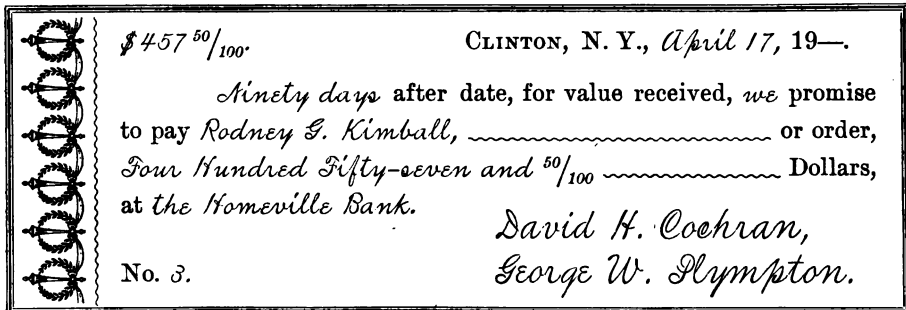 $457 50/100. CLINTON, N. Y., April 17, 19—.
Ninety days after date, for value received, we promise
to pay Rodney G. Kimball, or order,
Four Hundred Fifty-seven and 50/100 Dollars,
at the Homeville Bank.
David H. Cochran,
No. 3. George W. Plympton.